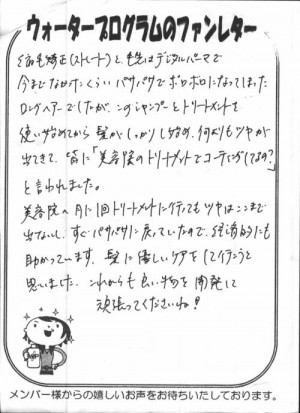 ウォータープログラムのファンレター
縮毛矯正(ストレート)と、毛先はデジタルパーマで
今までなかったくらい パサパサで ボロボロになってしまった
ロングヘアーでしたが、このシャンプーとトリートメントを
使い始めてから 髪がしっかりし始め、何よりもツヤが
出てきて、皆に「美容院のトリートメントでコーティングしてるの?」
と言われました。
美容院へ月に1回トリートメントに行ってもツヤはここまで
出ないし、すぐパサパサに戻っていたので、経済的にも
助かっています。髪に優しいケアをして行こうと
思いました。これからも良い物を開発して
頑張ってくださいね!
メンバー様からの嬉しいお声をお待ちいたしております。